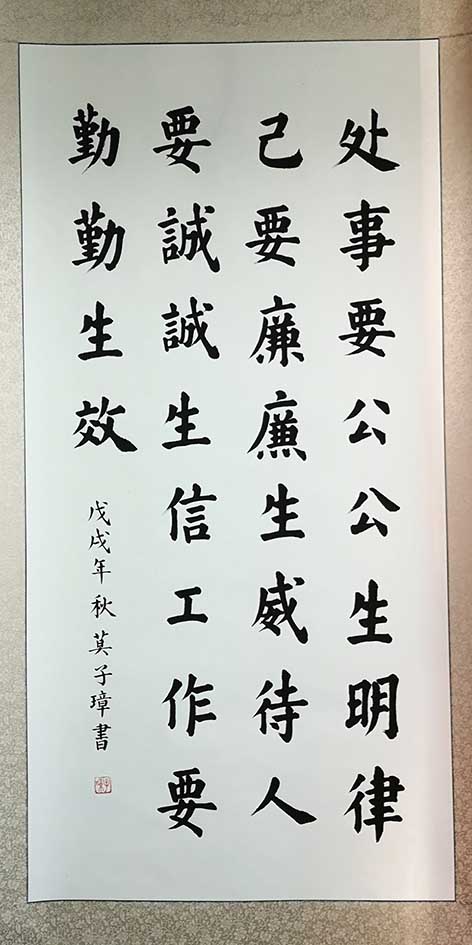 处事要公公生明律
己要廉廉生威待人
要誠誠生信工作要
勤勤生效
戊戌年秋莫子璋書